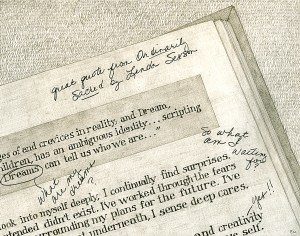 great quote from Ordinarily
Sacred by Lynda Sexson
ges of end crevices in reality, and Dream,
children, has an ambiguous identity... scripting
Dreams can tell us who we are..."
So what
am I
waiting
for?
what
are my
dreams
?
look into myself deeply, I continually find surprises.
tended didn't exist. I've worked through the fears
surrounding my plans for the future. I've
underneath, I sense deep cares.
yes!!
and creativity
self.